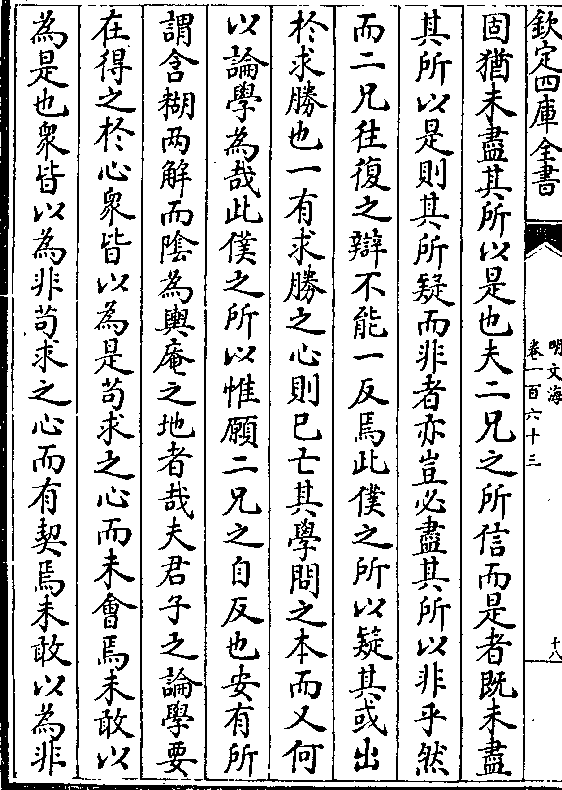 欽定四庫全書
明文海
卷一百六十三
十八
固猶未盡其所以是也夫二兄之所信而是者既未盡
其所以是則其所疑而非者亦豈必盡其所以非乎然
而二兄往復之辯不能一反焉此僕之所以疑其或出
於求勝也一有求勝之心則已亡其學問之本而又何
以論學為哉此僕之所以惟願二兄之自反也安有所
謂含糊兩解而陰為輿庵之地者哉夫君子之論學要
在得之於心衆皆以為是苟求之心而未會焉未敢以
為是也衆皆以為非苟求之心而有契焉未敢以為非